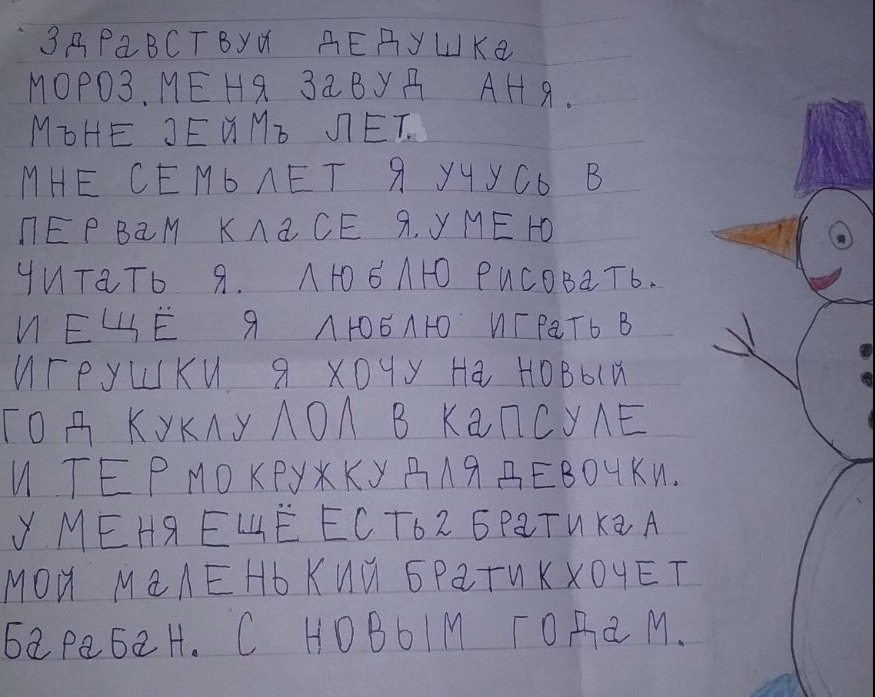 ЗДРаВСТВУЙ ДЕДУШКа
МОРОЗ. МЕНЯ ЗаВУД АНЯ.
МЪНЕ ЗЕЙМЪ ЛЕТ.
МНЕ СЕМЬ ЛЕТ Я УЧУСЬ В
ПЕРВаМ КЛаСЕ Я. УМЕЮ
ЧИТаТЬ Я. ЛЮБЛЮ РИСОВаТЬ.
И ЕЩЁ Я ЛЮБЛЮ ИГРаТЬ В
ИГРУШКИ Я ХОЧУ На НОВЫЙ
ГОД КУКЛУ ЛОЛ В КаПСУЛЕ
И ТЕРМОКРУЖКУ ДЛЯ ДЕВОЧКИ.
У МЕНЯ ЕЩЁ ЕСТЬ 2 БРаТИКа А
МОЙ МаЛЕНЬКИЙ БРаТИК ХОЧЕТ
БаРаБаН. С НОВЫМ ГОДаМ.